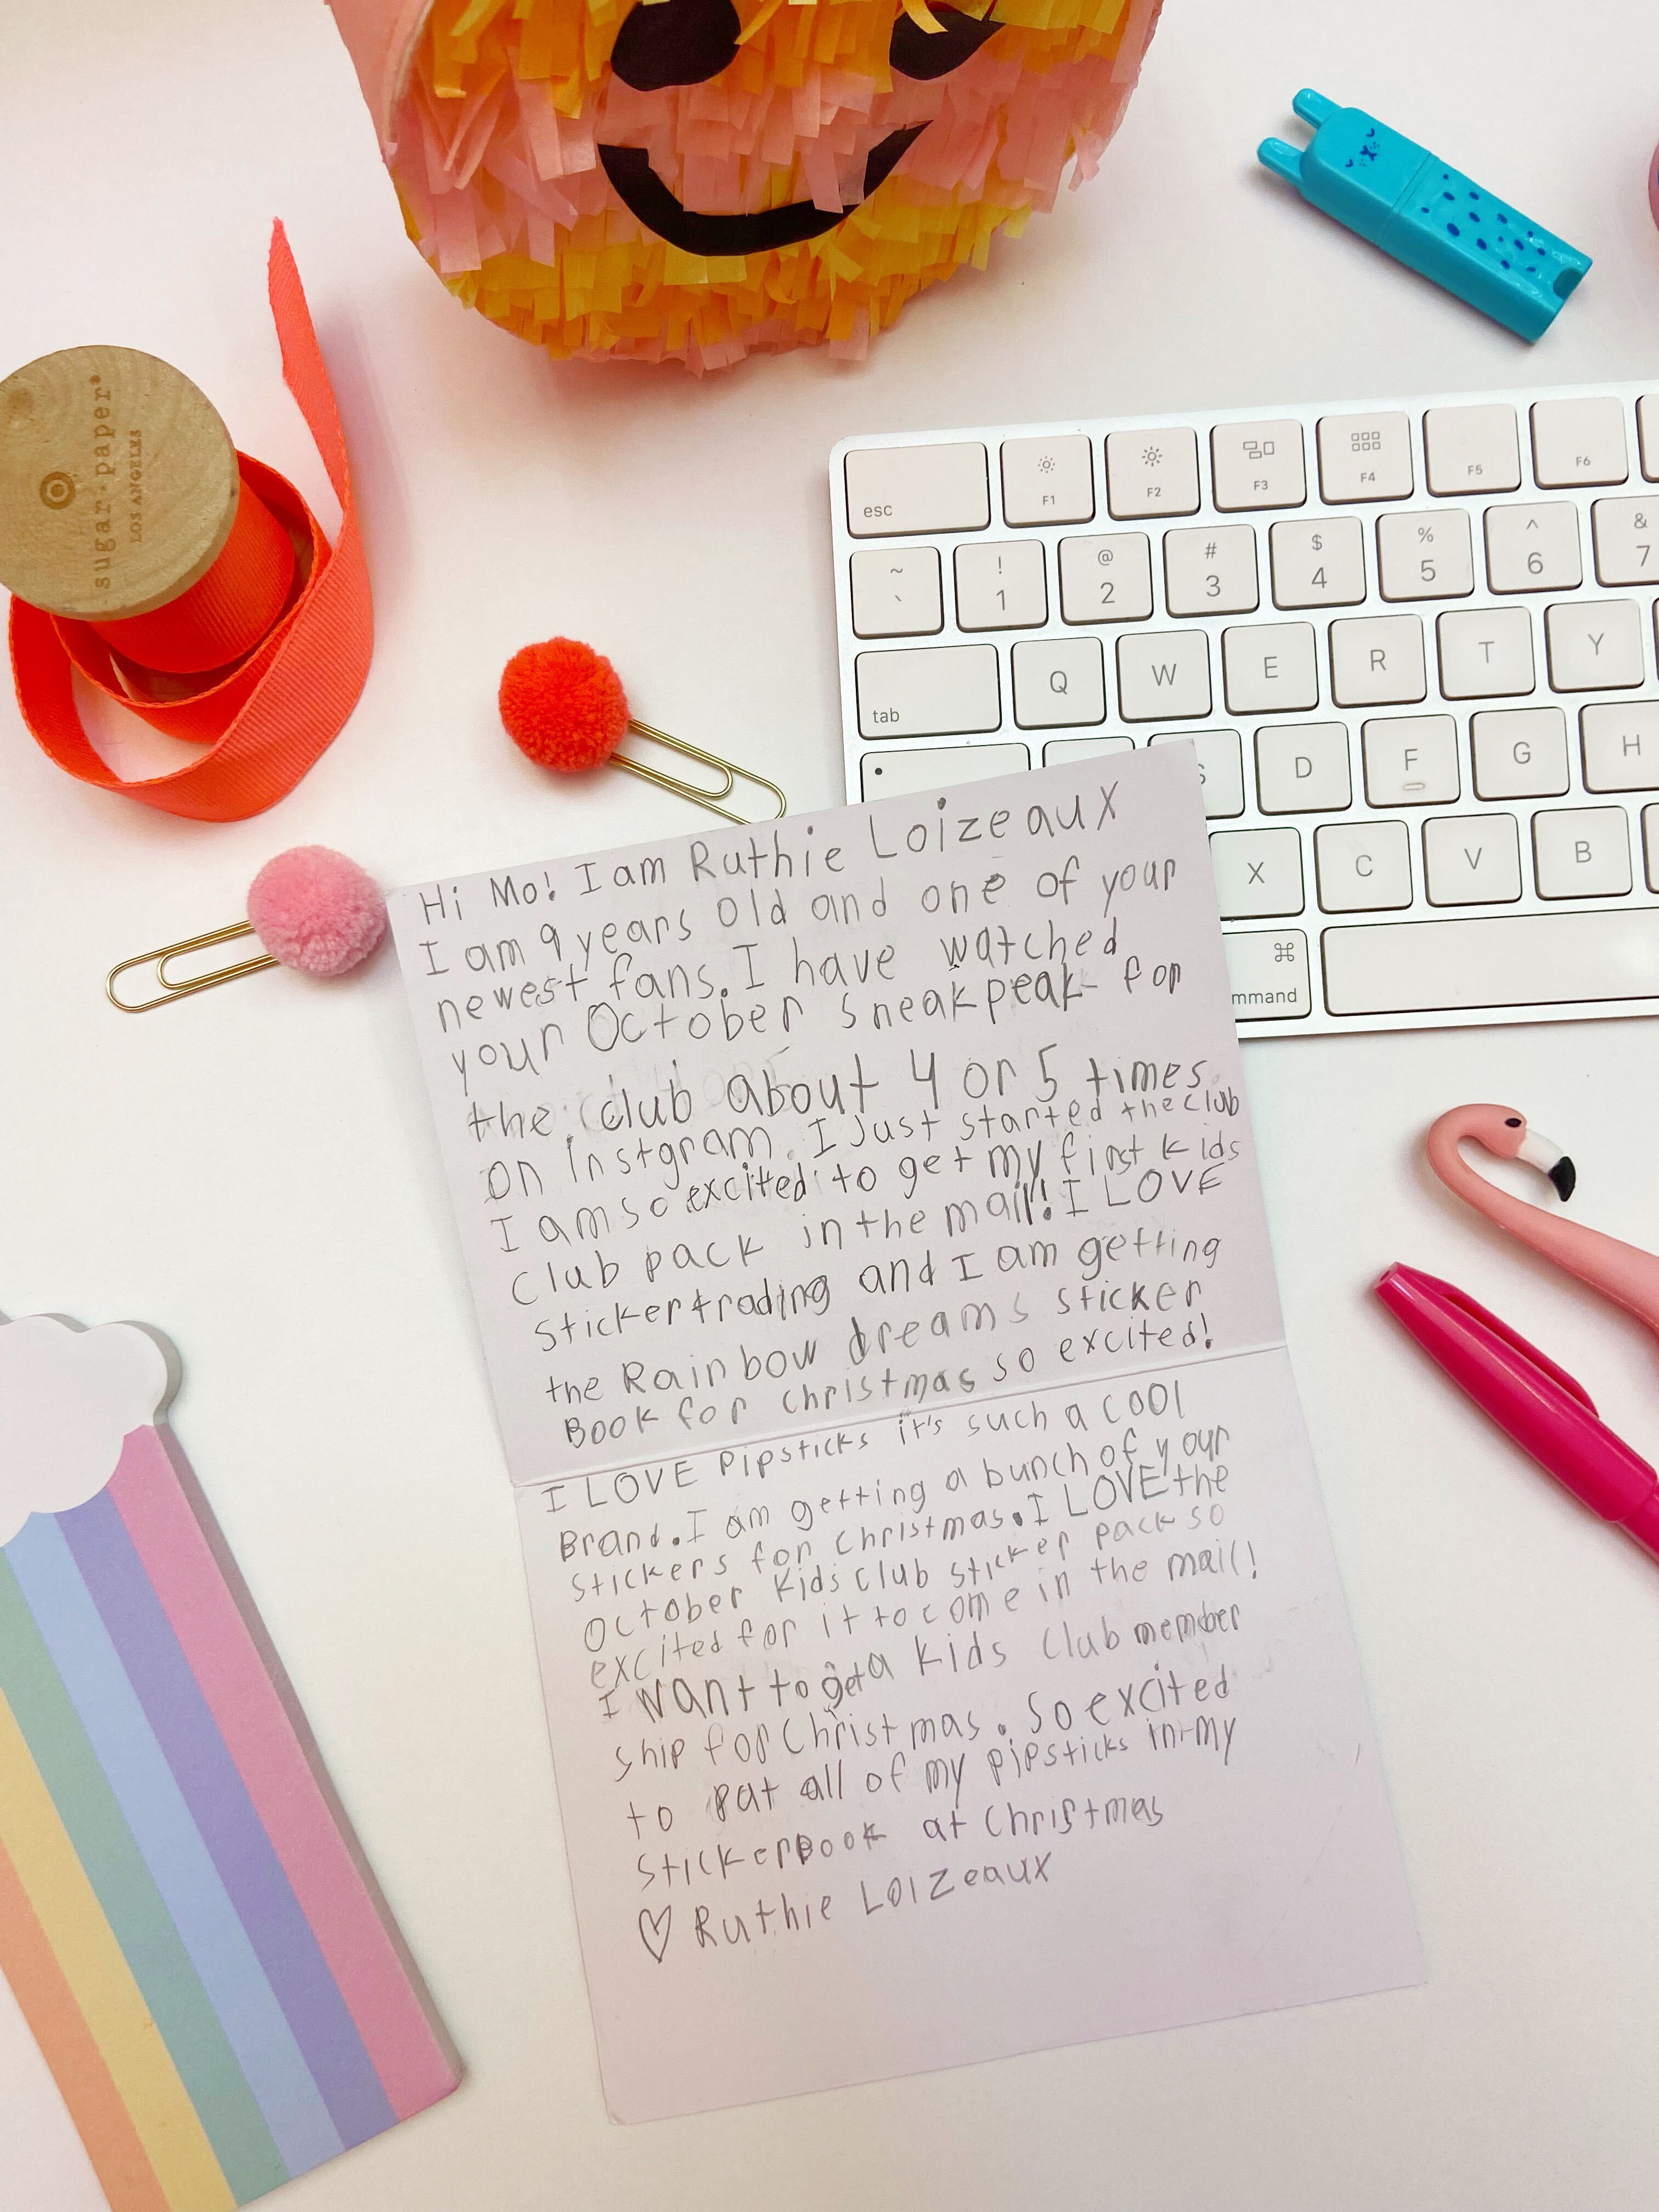 sugar·paper®
LOS ANGELES
esc
F1
F2
F3
F4
F5
F6
~
`
!
1
@
2
#
3
$
4
%
5
^
6
&
7
tab
Q
W
E
R
T
Y
S
D
F
G
H
X
C
V
B
⌘
mmand
Hi Mo! I am Ruthie Loizeaux
I am 9 years old and one of your
newest fans. I have watched
your October sneak peak for
the club about 4 or 5 times
on Instgram. I just started the club
I am so excited to get my first kids
club pack in the mail! I LOVE
sticker trading and I am getting
the Rainbow dreams sticker
Book for christmas so excited!
I LOVE Pipsticks it's such a cool
Brand. I am getting a bunch of your
stickers for christmas. I LOVE the
October Kids club sticker pack so
excited for it to come in the mail!
I want to get a kids club member
ship for Christmas. So excited
to pat all of my pipsticks in my
stickerbook at Christmas
♡ Ruthie Loizeaux